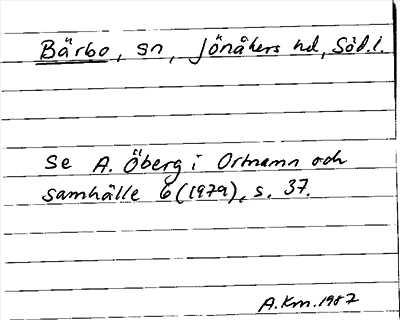 Bärbo, sn, Jönåkers hd, Söd.l.
Se A. Öberg i Ortnamn och
samhälle 6 (1979), s. 37.
A.Km. 1987